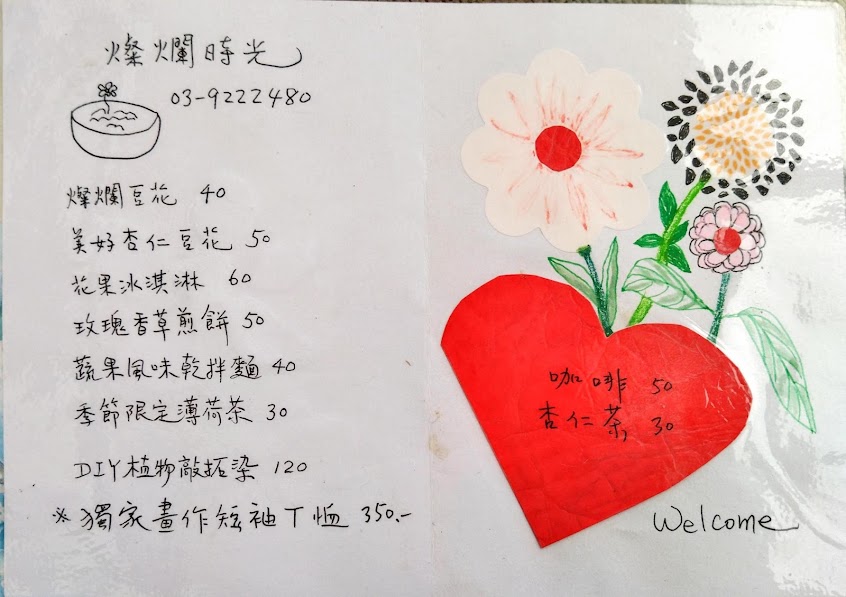 燦爛時光
03-9222480
燦爛豆花 40
美好杏仁豆花 50
花果冰淇淋 60
玫瑰香草煎餅 50
蔬果風味乾拌麵 40
季節限定薄荷茶 30
DIY植物敲拓染 120
※獨家畫作短袖T恤 350.-
咖啡 50
杏仁茶 30
Welcome